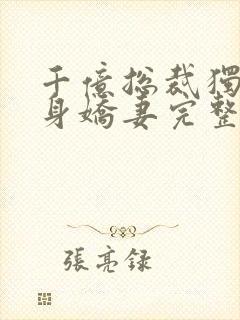 千億总裁獨
身嬌妻完整
張亮録